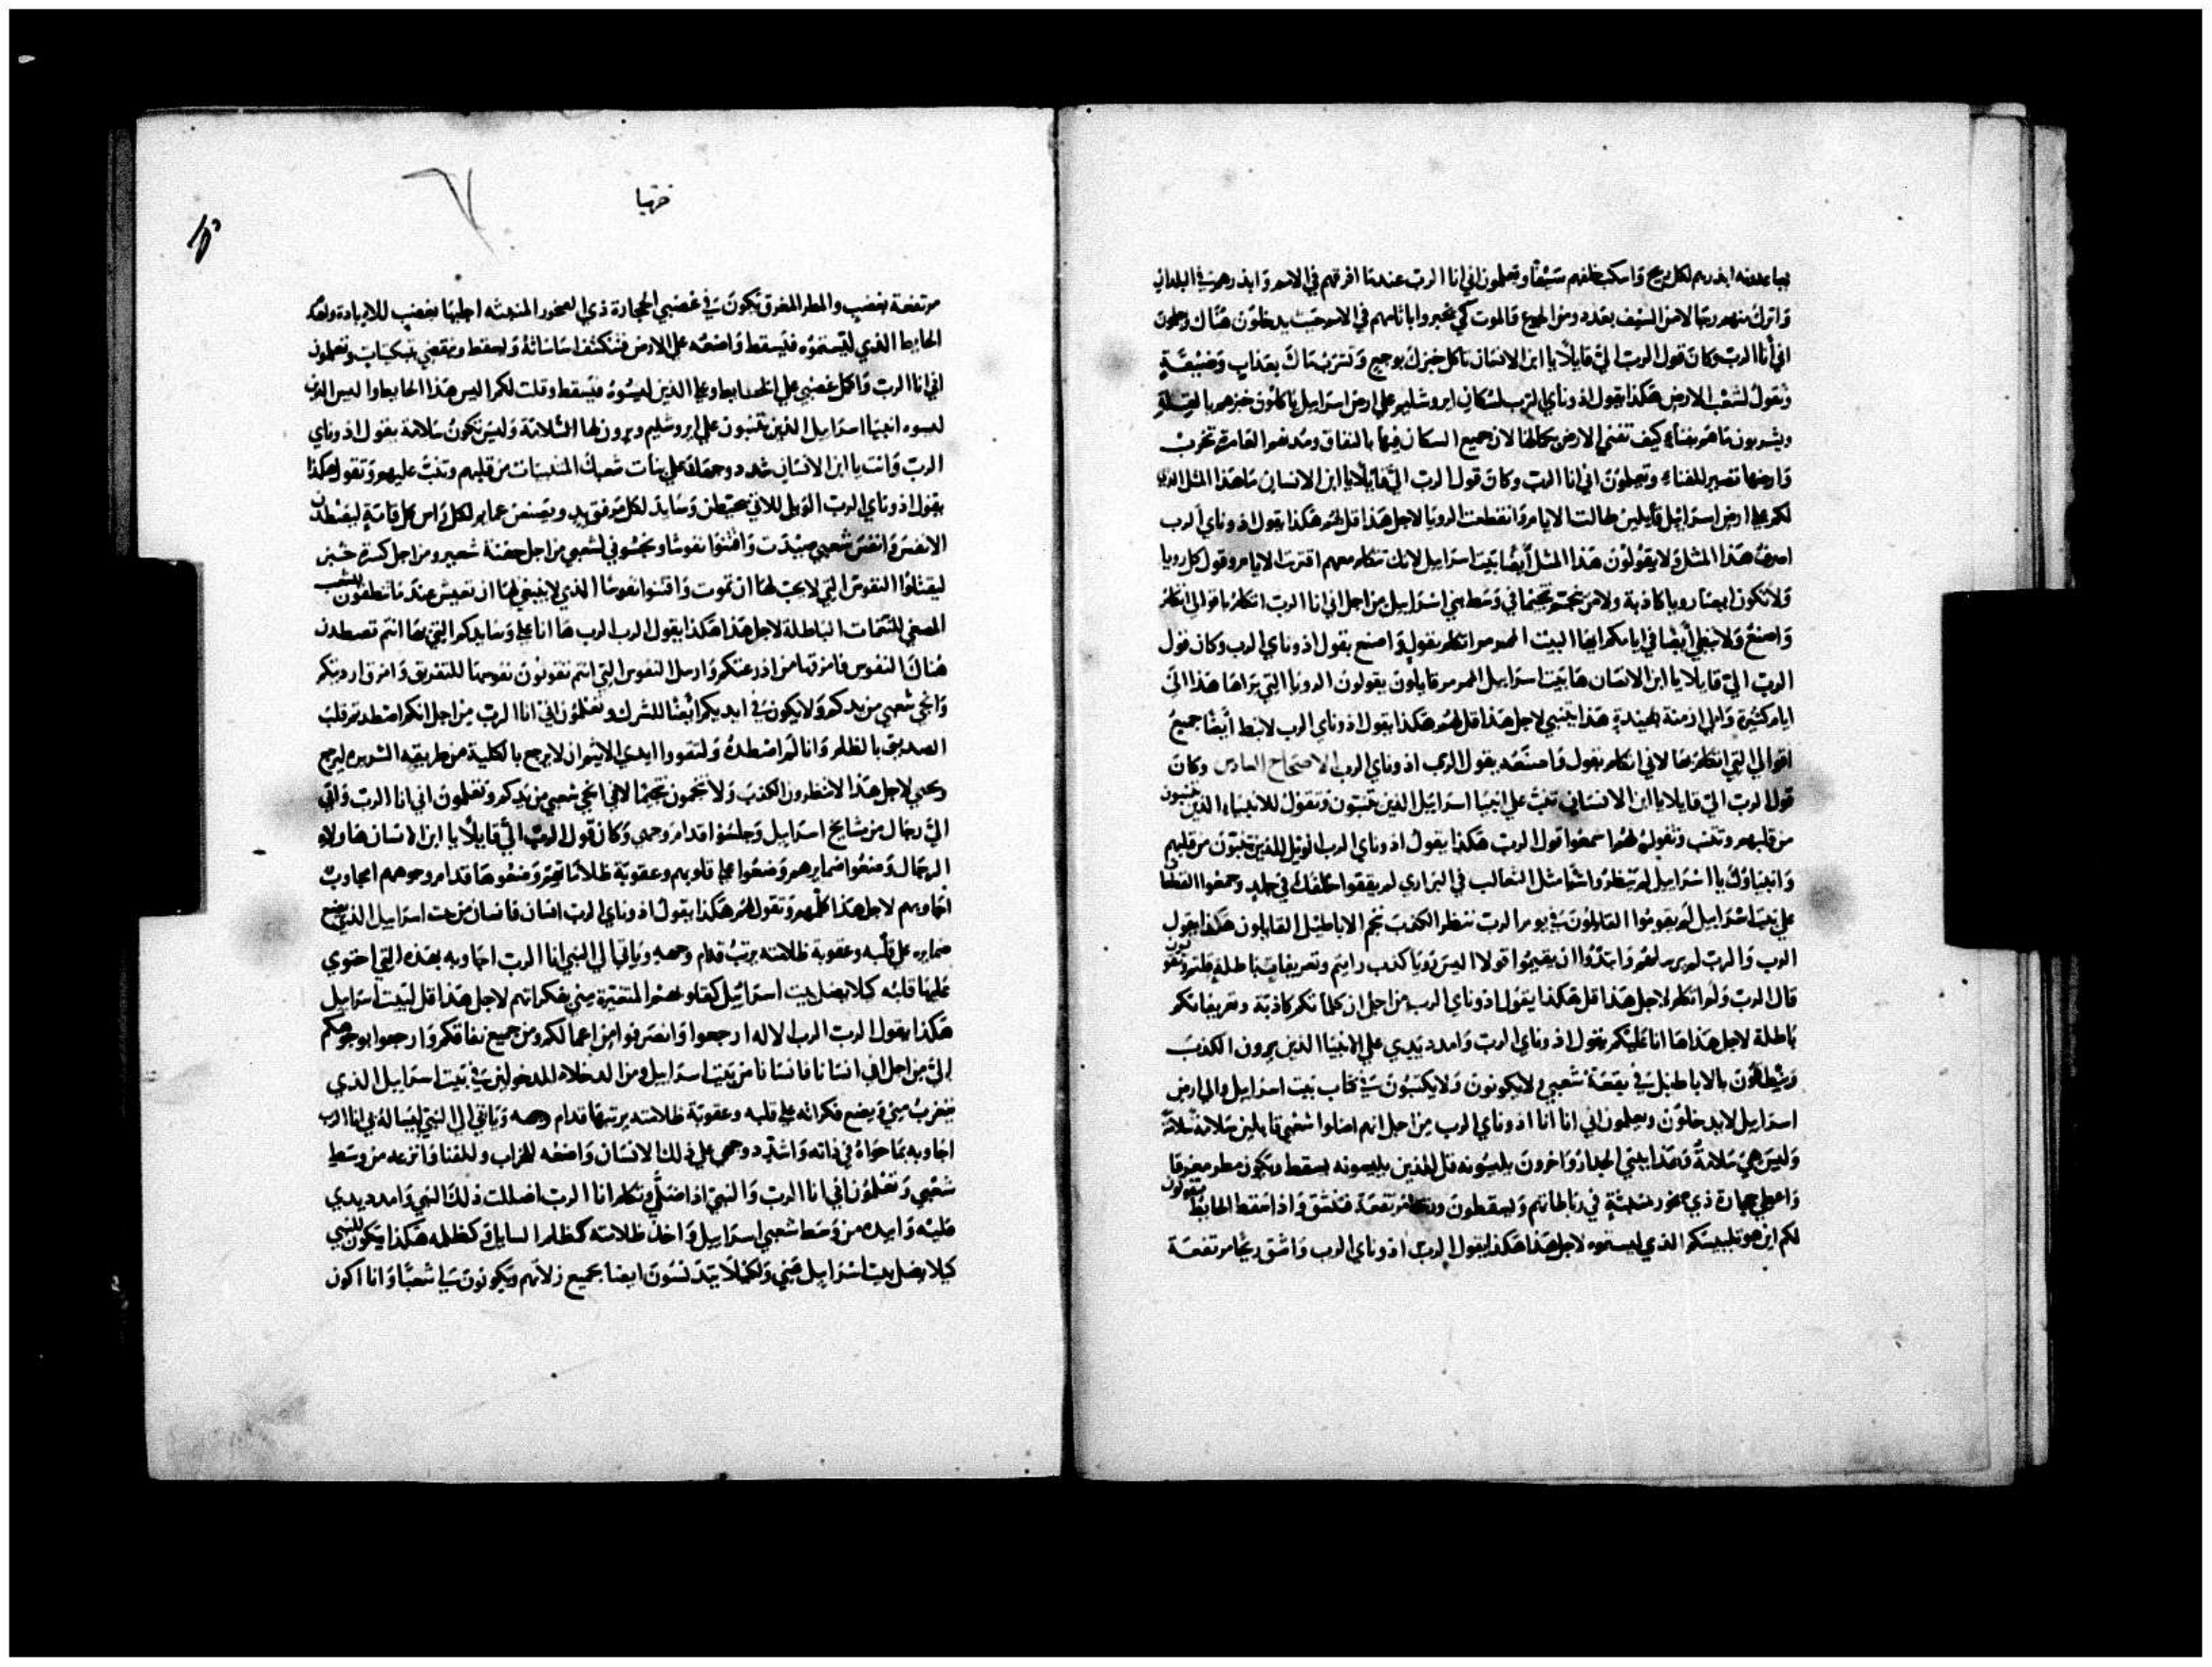 بساعدته ابذرهم لكل ريح واسكب خلفهم سيفا وتعلمون اني انا الرب عندما افرقهم في الامم وابذرهم في البلدان
واترك منهم رجالا من السيف بعدد ومن الجوع والموت كي يخبروا باثامهم في الامم حيث يدخلون هناك وتعلمون
اني انا الرب وكان قول الرب الي قايلا يا ابن الانسان تأكل خبزك بوجع وتشرب ماك بعذاب وضيقة
وتقول لشعب الارض هكذا يقول اذوناي الرب لسكان ايروشليم علي ارض اسراييل ياكلون خبزهم بالقلة
ويشربون ماهم بفناء كيف تفني الارض بكمالها لان جميع السكان فيها بالنفاق ومدنهم العامرة تخرب
وارضها تصير للفناء وتعلمون اني انا الرب وكان قول الرب الي قايلا يا ابن الانسان ما هذا المثل الذي
لكم علي ارض اسراييل قايلين طالت الايام وانقطعت الرويا لاجل هذا قل لهم هكذا يقول اذوناي الرب
اصرف هذا المثل ولا يقولون هذا المثل أيضا بيت اسراييل لانك تتكلم معهم اقتربت الايام وقول كل رويا
ولا تكون ايضا رويا كاذبة ولا من تنجم تنجيما في وسط بني اسراييل من اجل اني انا الرب اتكلم باقوالي اتكلم
واصنع ولا ابطي أيضا في ايامكم ايها البيت الممرمر اتكلم بقول واصنع يقول اذوناي الرب وكان قول
الرب الي قايلا يا ابن الانسان ها بيت اسراييل الممرمر قايلون يقولون الرويا التي يراها هذا الي
ايام كثيرة والي ازمنة بعيدة هذا يتنبي لاجل هذا قل لهم هكذا يقول اذوناي الرب لا تبط أيضا جميع
اقوالي التي اتكلم بها لاني اتكلم بقول واصنعه يقول الرب اذوناي الرب الاصحاح السادس وكان
قول الرب الي قايلا يا ابن الانسان تنب علي انبيا اسراييل الذين يتنبون وتقول للانبياء الذين يتنبون
من قلبهم وتنب وتقول لهم اسمعوا قول الرب هكذا يقول اذوناي الرب الويل للذين يتنبون من قلبهم
وانبياوك يا اسراييل مثل الثعالب في البراري لم يقفوا في جلد وجمعوا القطعان
علي بيت اسراييل لم يقوموا القايلون في يوم الرب تنظر الكذب نجم الاباطيل القايلون هكذا يقول
الرب والرب لم يرسلهم وابتدوا ان يقيموا قولا اليس رويا كذب رايتم وتعريفات باطلة قلتم وتقولون
قال الرب ولم اتكلم لاجل هذا قل هكذا يقول اذوناي الرب من اجل ان كلامكم كاذبة وتعريفاتكم
باطلة لاجل هذا ها انا عليكم يقول اذوناي الرب وامدد يدي علي الانبيا الذين يرون الكذب
بالاباطيل في بقعة شعبي لا يكونون ولا يكتبون في كتاب بيت اسراييل والي ارض
اسراييل لا يدخلون وتعلمون اني انا انا اذوناي الرب من اجل انهم اضلوا شعبي قايلين سلامة سلامة
وليس هي سلامة وهذا يبني الجدار واخرون يليسونه قل للذين يليسونه يسقط ويكون مطر مغرقا
واعطي حجارة ذي صخور في رباطاتهم ويسقطون وريحا مرتفعة فتنشق واذا سقط الحايط يقولون
لكم اين هو تلييسكم الذي ليستموه لاجل هذا هكذا يقول الرب اذوناي الرب واشق ريحا مرتفعة
حزقيا
مرتفعة بغضب والمطر المغرق يكون في غضبي الحجارة ذي الصخور اجلبها بغضب للابادة واهد
الحايط الذي ليستموه فيسقط واضعه علي الارض فتنكشف اساساته ويسقط وينقضي بتبكيتات وتعلمون
اني انا الرب واكمل غضبي علي الحايط وعلي الذين ليسوه فيسقط وقلت لكم اليس هذا الحايط والا ليس الذين
ليسوه انبيا اسراييل الذين يتنبون علي ايروشليم ويرون لها السلامة وليس تكون سلامة يقول اذوناي
الرب وانت يا ابن الانسان شدد وجهك علي بنات شعبك المتنبيات من قلبهم وتنب عليهم وتقول هكذا
يقول اذوناي الرب الويل للاتي يخيطن وسايد لكل مرفق يد ويصنعن عمايم لكل راس كل قامة ليصطدن
الانفس وانفس شعبي صيدت واقتنوا نفوسا ونجسوني لشعبي من اجل حفنة شعير ومن اجل كسرة خبز
ليقتلوا النفوس التي لا يجب لها ان تموت واقتنوا نفوسا الذي لا ينبغي لها ان تعيش عندما تنطقون للشعب
المصغي للتعمات الباطلة لاجل هذا هكذا يقول الرب الرب ها انا علي وسايدكم التي بها انتم تصطدن
هناك النفوس فامزقها من اذرعتكم وارسل النفوس التي انتم تقولون نفوسها للتفريق وامزق ارديتكم
وانجي شعبي من يدكم ولا يكون في ايديكم ايضا للشرك وتعلمون اني انا الرب من اجل انكم اضطهدتم قلب
الصديق بالظلم وانا لم اضطهده ولتقووا ايدي الاثيم ان لا يرجع بالكلية من طريقه الشريرة ليرجع
ويحيي لاجل هذا لا تنظرون الكذب ولا تنجمون تنجيما لاني انجي شعبي من يدكم وتعلمون اني انا الرب واتي
الي رجال من مشايخ اسراييل وجلسوا قدام وجهي وكان قول الرب الي قايلا يا ابن الانسان هاولاء
الرجال وضعوا ضمايرهم وضعوا علي قلوبهم وعقوبة ظلاماتهم وضعوها قدام وجوههم اجاوب
اجاوبهم لاجل هذا كلمهم وتقول لهم هكذا يقول اذوناي الرب انسان فانسان من بيت اسراييل الذي يضع
ضمايره علي قلبه وعقوبة ظلامته يرتب قدام وجهه ويأتي الي النبي انا الرب اجاوبه بهذه التي احتوي
عليها قلبه كيلا يضل بيت اسراييل كقلوبهم المتغيرة مني بفكراتهم لاجل هذا قل لبيت اسراييل
هكذا يقول الرب الرب الاله ارجعوا وانصرفوا من اعمالكم ومن جميع نفاقكم وارجعوا بوجوهكم
الي من اجل اني انسانا فانسانا من بيت اسراييل ومن الدخلاء المدخولين في بيت اسراييل الذي
يتغرب مني ويضع فكراته علي قلبه وعقوبة ظلامته يرتبها قدام وجهه وياتي الي النبي ليساله في انا الرب
اجاوبه بما حواه في ذاته واشدد وجهي علي ذلك الانسان واضعه للخراب وللفنا وانزعه من وسط
شعبي وتعلمون اني انا الرب والنبي اذا ضل وتكلم انا الرب اضللت ذلك النبي وامدد يدي
عليه وابيده من وسط شعبي اسراييل واخذ ظلامته كظلم السايل وكظلمه هكذا يكون للنبي
كيلا يضل بيت اسراييل عني ولكيلا يتدنسون ايضا بجميع زلاتهم ويكونون لي شعبا وانا اكون